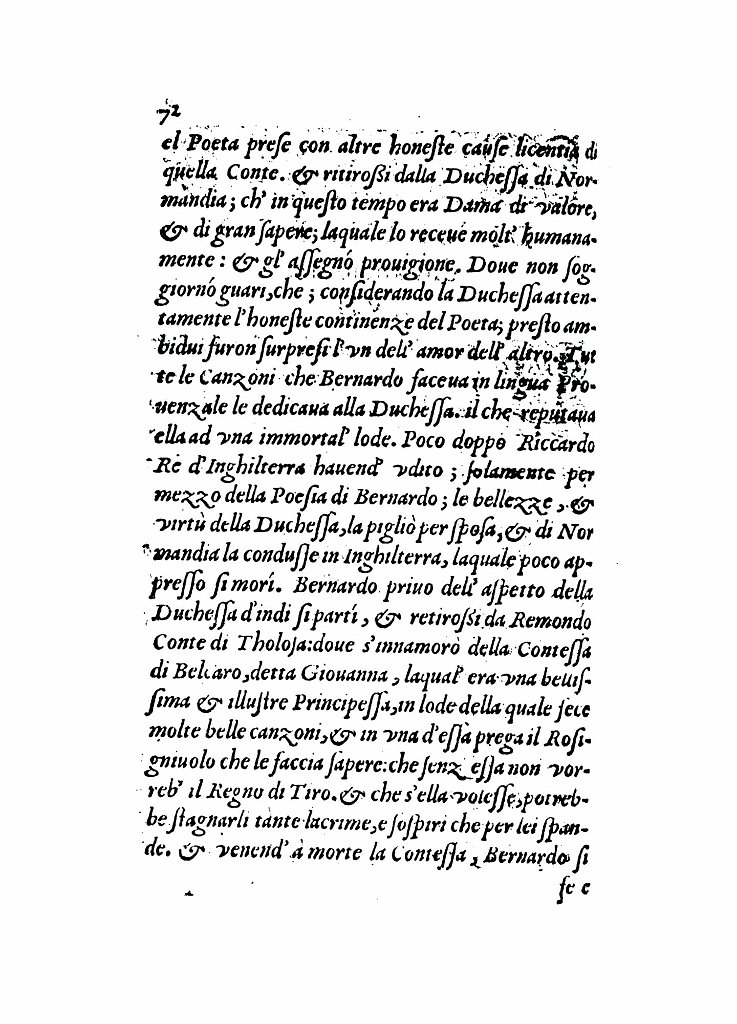 72
el Poeta preſe con altre honeſte cauſe licentia di
quella Conte. & ritiroßi dalla Ducheſſa di Nor-
mandia; ch' in queſto tempo era Dama di valore,
& di gran ſapere; laquale lo receuè molt' humana-
mente: & gl' aſſegnó prouigione. Doue non ſog-
giornó guari, che; conſiderando la Ducheſſa atten-
tamente l'honeſte continenze del Poeta; preſto am-
bidui furon ſurpreſi l'vn dell' amor dell' altro. Tut
te le Canzoni che Bernardo faceua in lingua Pro-
uenzale le dedicaua alla Ducheſſa. il che reputaua
ella ad vna immortal' lode. Poco doppò Riccardo
Rè d'Inghilterra hauend' vdito; ſolamente per
mezzo della Poeſia di Bernardo; le bellezze, &
virtù della Ducheſſa, la pigliò per ſpoſa, & di Nor
mandia la conduſſe in Inghilterra, laquale poco ap-
preſſo ſi morí. Bernardo priuo dell' aſpetto della
Ducheſſa d'indi ſi partí, & retiroſſi da Remondo
Conte di Tholoſa: doue s'innamorò della Conteſſa
di Belcaro, detta Giouanna, laqual' era vna belliſ-
ſima & illuſtre Principeſſa, in lode della quale fece
molte belle canzoni, & in vna d'eſſa prega il Roſi-
gniuolo che le faccia ſapere: che ſenz' eſſa non vor-
reb' il Regno di Tiro. & che s'ella voleſſe, potreb-
be ſtagnarli tante lacrime, e ſoſpiri che per lei ſpan-
de. & venend' à morte la Conteſſa, Bernardo ſi
fe c